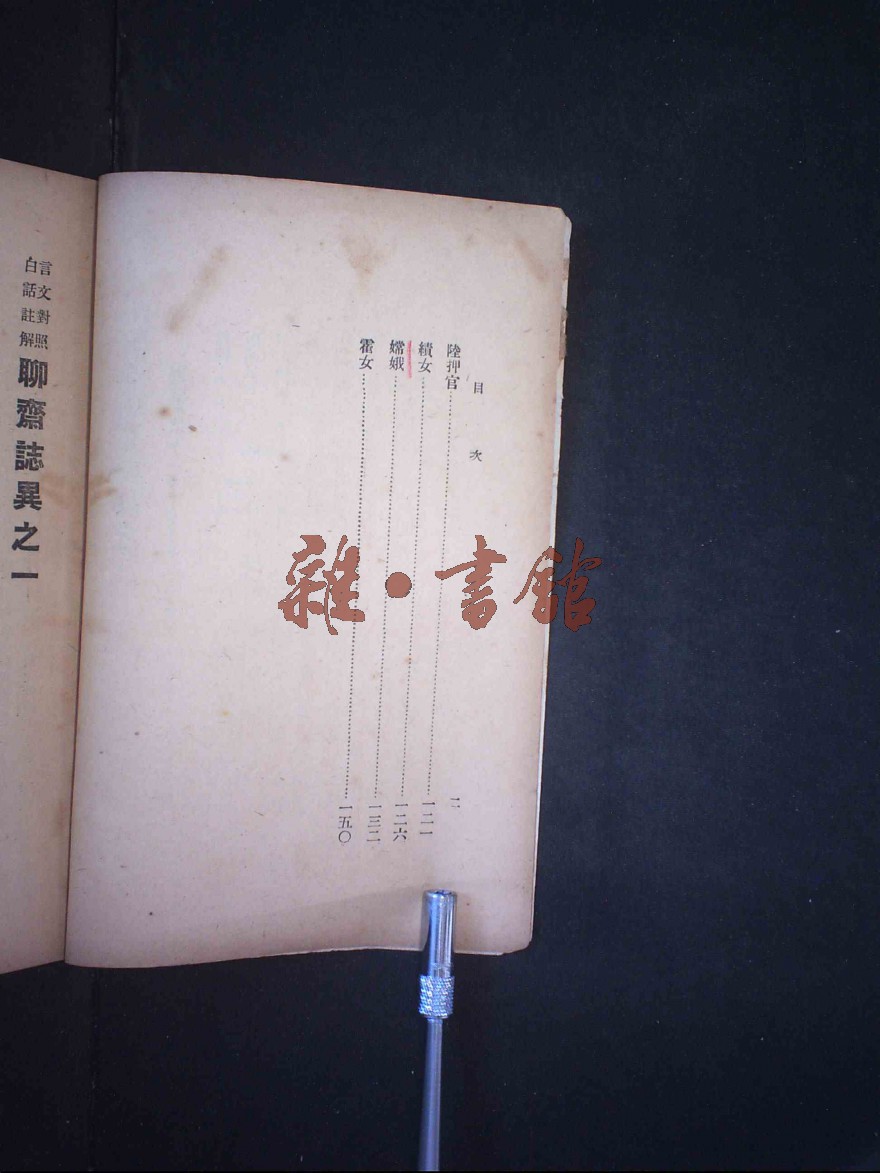 目次
二
陸押官一二一
績女一二六
嫦娥一三二
霍女一五〇
言文對照
白話註解
聊齋誌異之一
雜·書館